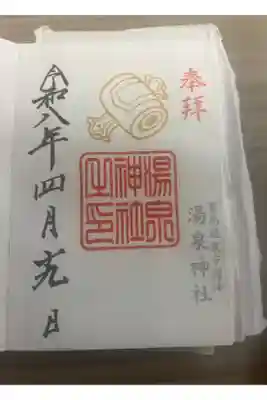 奉拝
湯泉神社
湯泉
神社
之印
令和八年四月 日